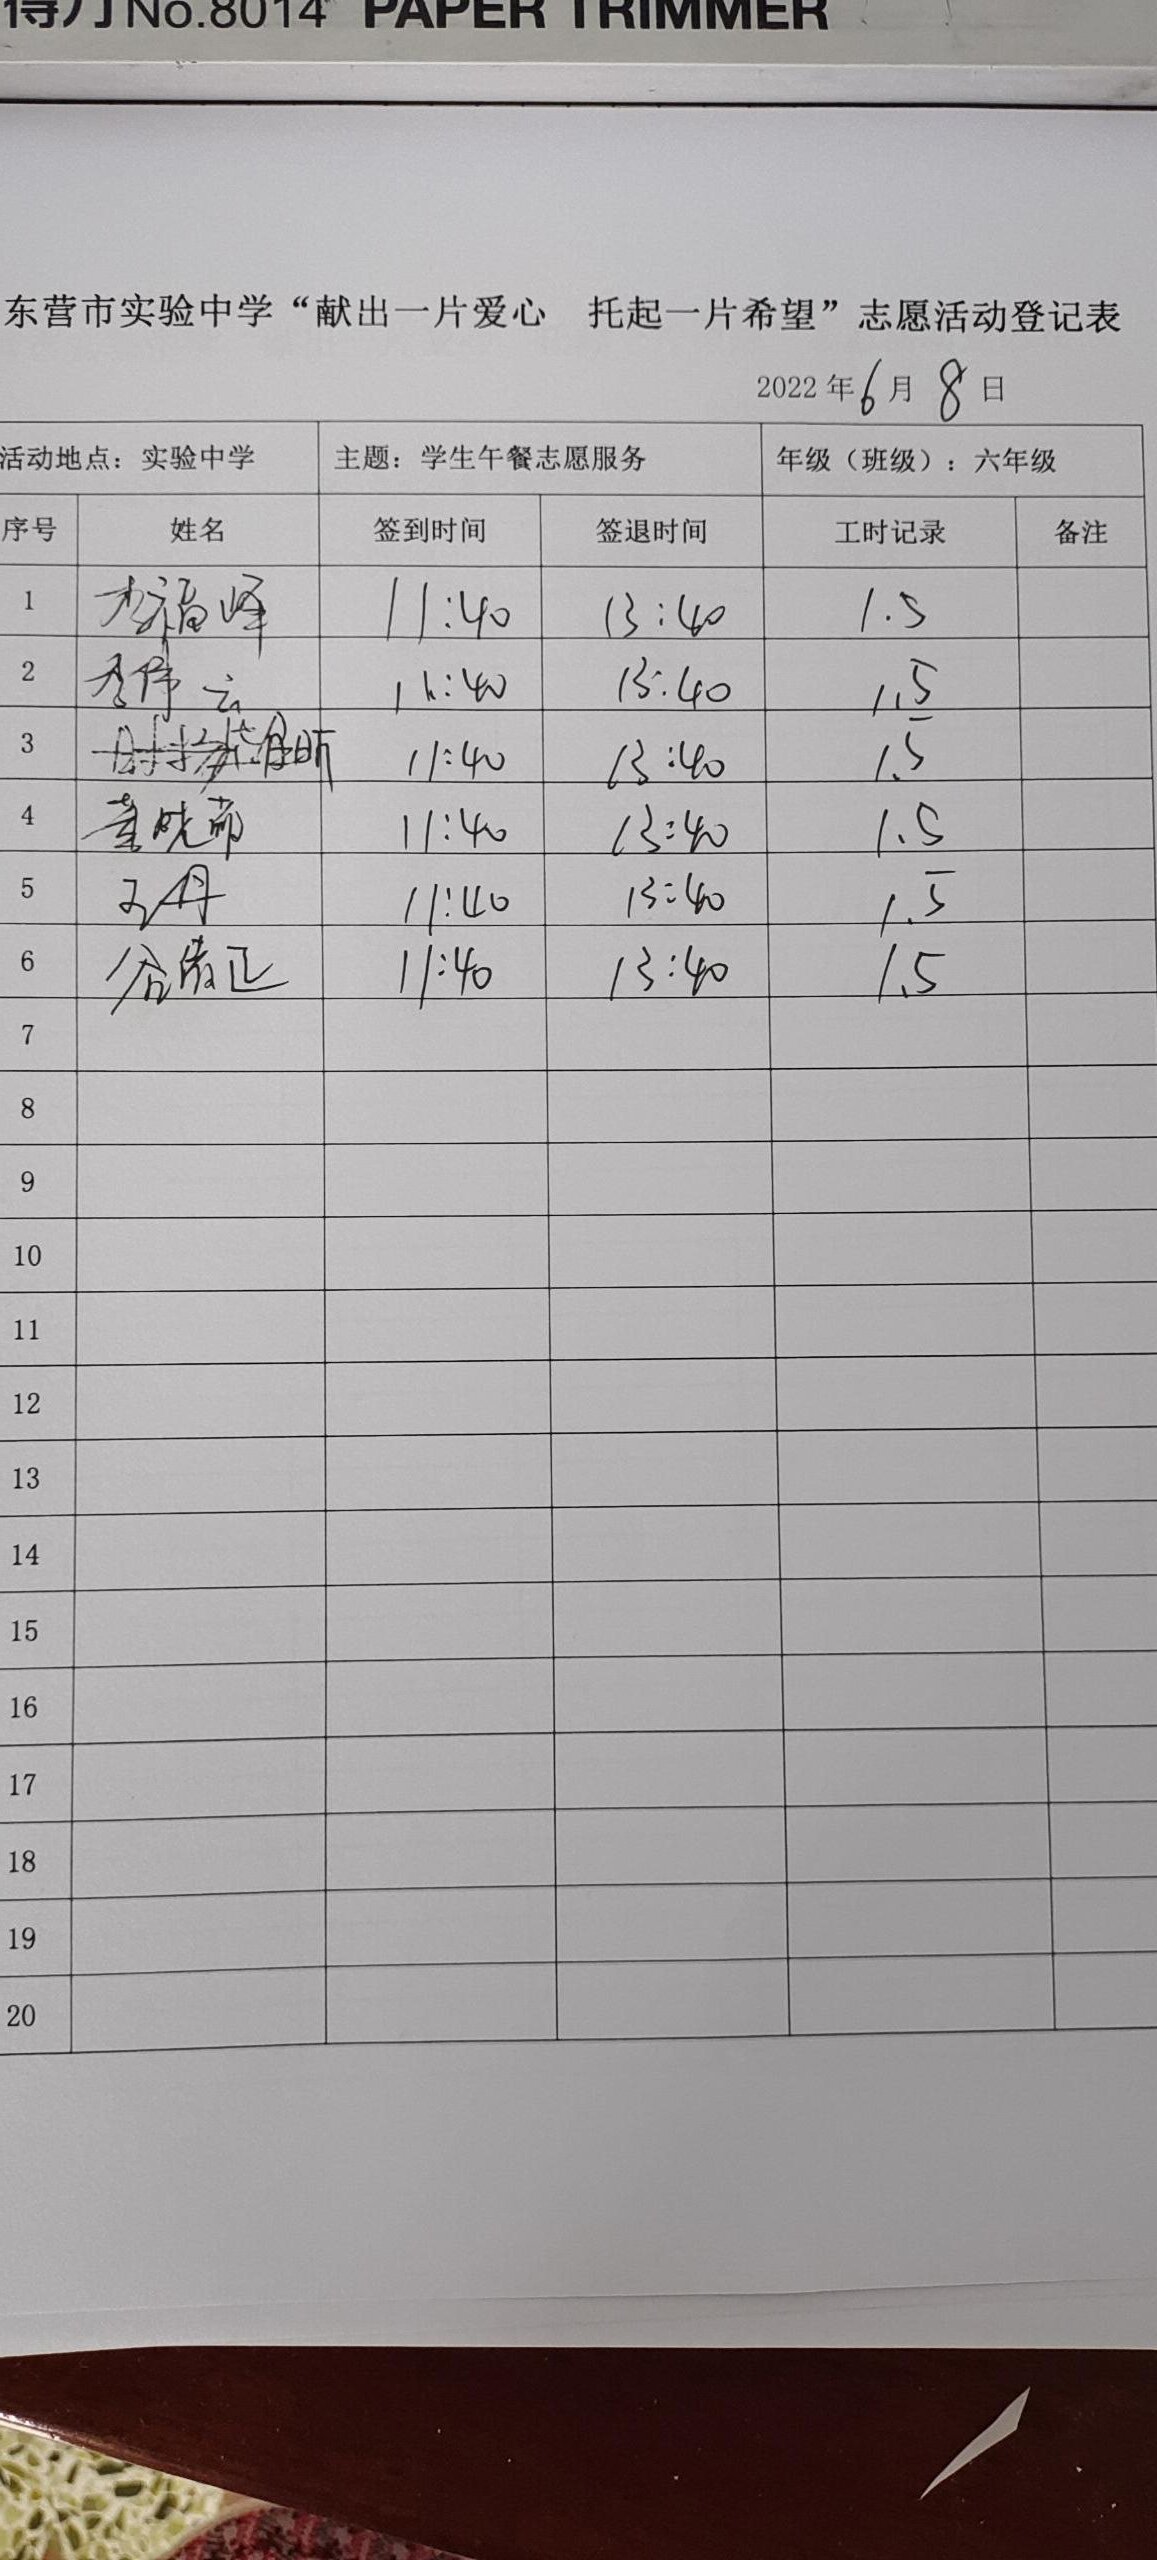 得力No.8014 PAPER TRIMMER
东营市实验中学“献出一片爱心 托起一片希望”志愿活动登记表
2022年6月8日
活动地点：实验中学 主题：学生午餐志愿服务 年级（班级）：六年级
序号 姓名 签到时间 签退时间 工时记录 备注
1 李福峰 11:40 13:40 1.5
2 11:40 13:40 1.5
3 11:40 13:40 1.5
4 董晓茹 11:40 13:40 1.5
5 王丹 11:40 13:40 1.5
6 11:40 13:40 1.5
7
8
9
10
11
12
13
14
15
16
17
18
19
20